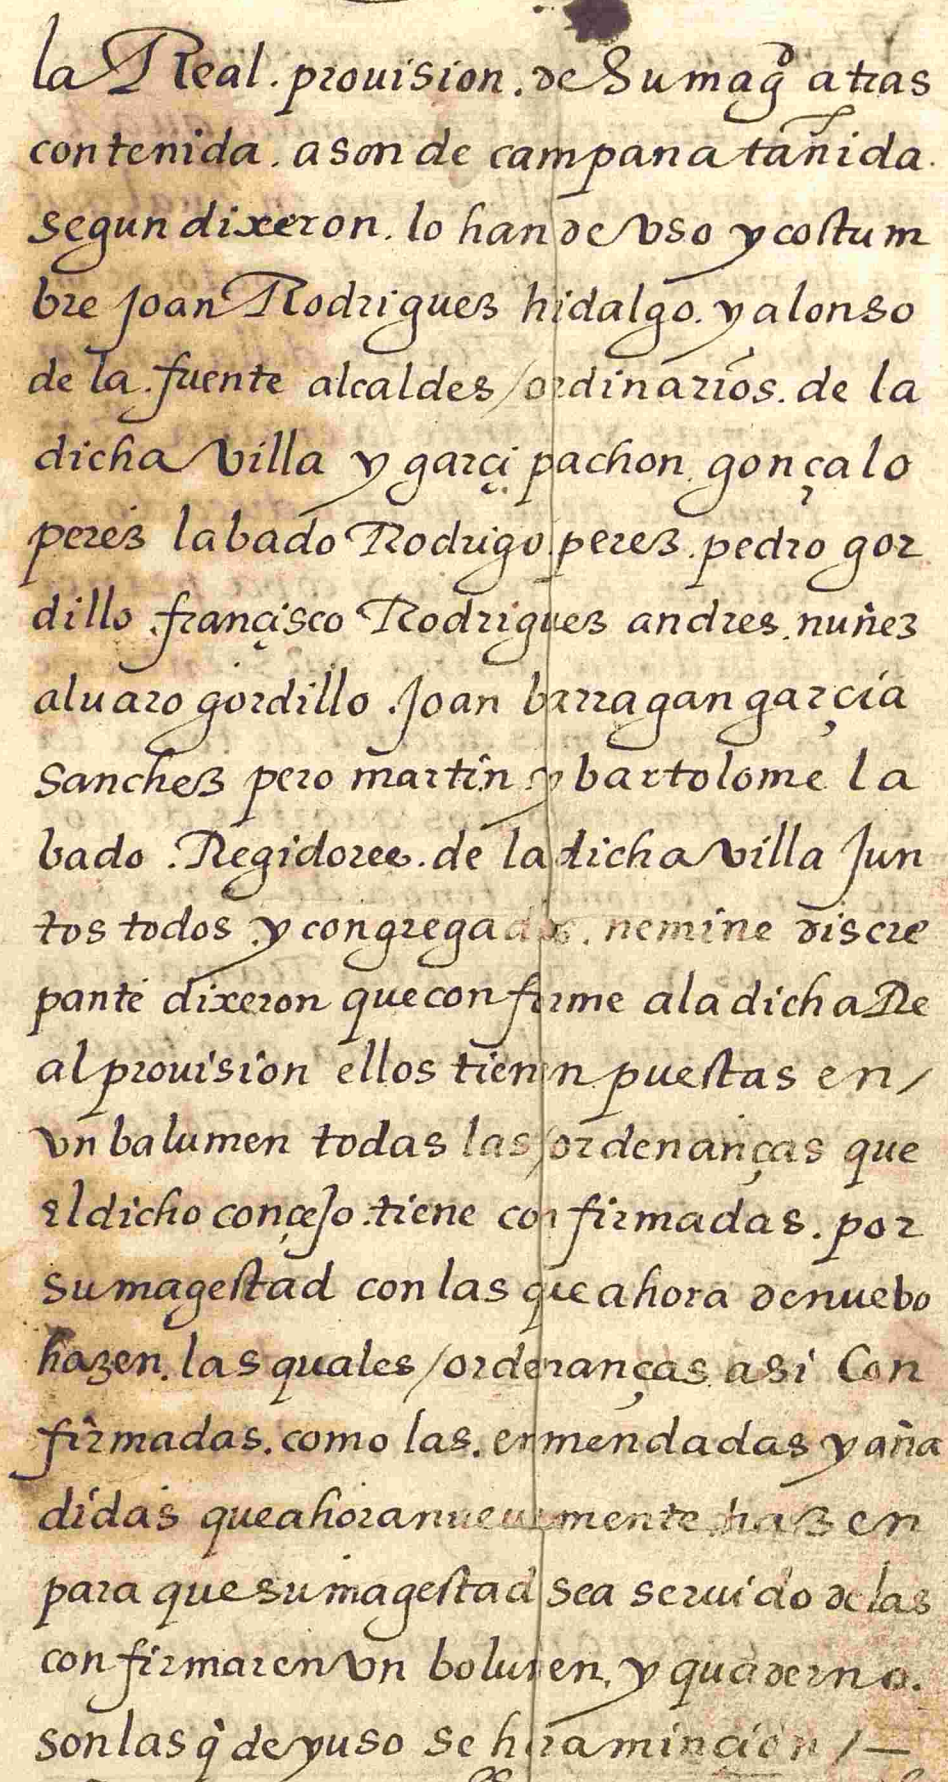 la Real. prouision. de Su magd atras
contenida. a son de campana tañida.
segun dixeron. lo han de vso y costum
bre Joan Rodriguez hidalgo. y alonso
de la. fuente alcaldes /ordinarios. de la
dicha villa y garçi pachon. gonçalo
perez labado Rodrigo perez. pedro gor
dillo. françisco Rodriguez andres. nuñez
aluaro gordillo. Joan barragan garçia
sanchez pero martin y bartolome la
bado. Regidores. de la dicha villa Jun
tos todos y congregados. nemine discre
pante dixeron que conforme a la dicha Re
al prouision ellos tienen puestas en/
vn balumen todas las /ordenanças que
el dicho conçejo. tiene confirmadas. por
su magestad con las que ahora de nuebo
hazen. las quales /ordenanças. asi Con
firmadas. como las. enmendadas y aña
didas que ahora nueuamente hazen
para que su magestad sea seruido de las
confirmar en vn bolumen, y quaderno.
son las q̃ de yuso se hara minçion /—